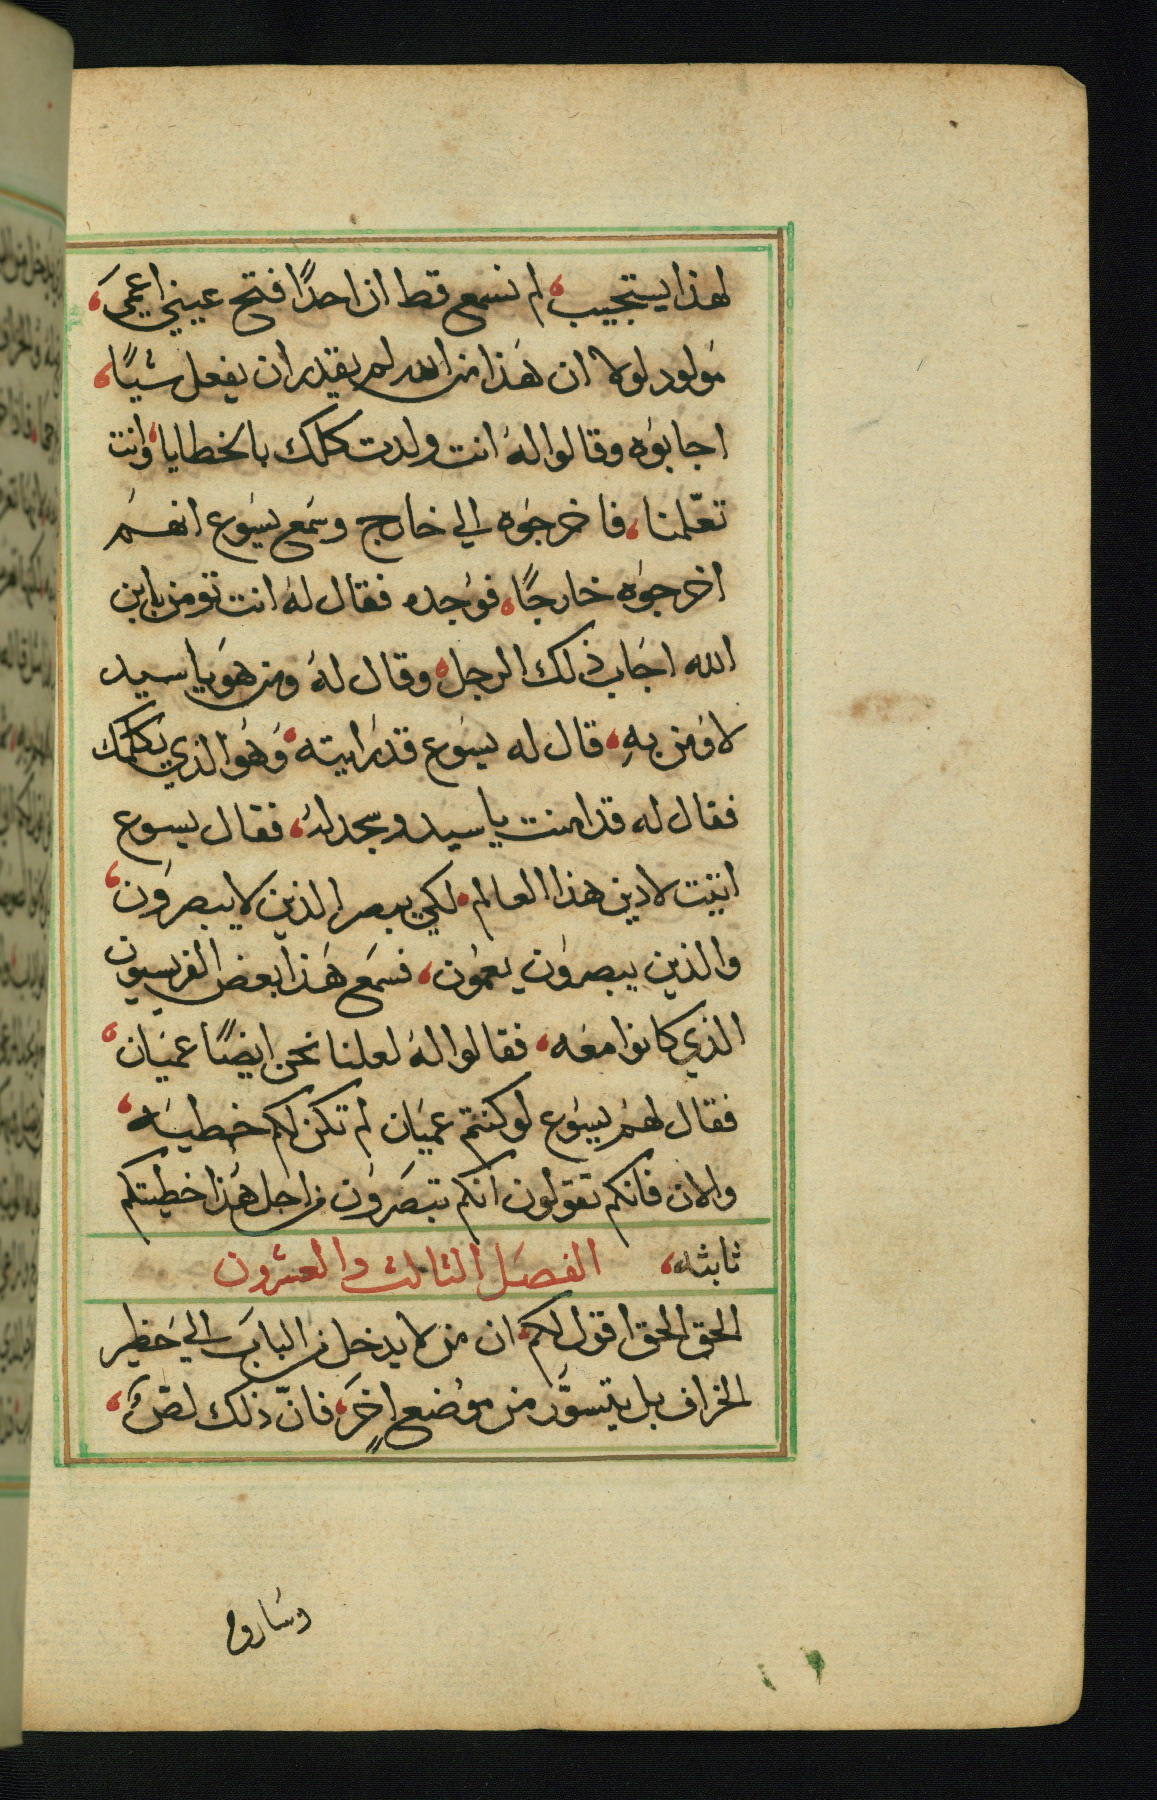 لهذا يستجيب، لم نسمع قط ان احدًا فتح عيني اعمىَ،
مَولود لولا ان هَذا من الله لم يقدر ان يفعل شيًا،
اجابوُه وقالوا لهُ انت ولدت كلك بالخطايا، وَانت
تعّلمنا، فاخرجوَه الي خارج وسَمع يسَوع انهمُ
اخرجوَه خارجًا، فوَجده فقال لهُ انت تومن بابن
الله اجَاب ذلك الرجل، وقال لهُ ومن هوَ يا سيد
لاوَمن بهِ، قال له يسوَع قد رَايته، وَهوَ الذي يكلمك
فقال له قد امنت يا سيد وسجد لهُ، فقال يسوع
اتيت لادين هذا العالم، لكي يبصر الذين لا يبصرَون،
والذين يبصروَن يعموُن، فسمَع هَذا بعض الفريسيون
الذي كانوا معَه، فقالوا لهُ لعلنا نحن ايضًا عميَان،
فقال لهمُ يسَوع لو كنتم عميَان لم تكن لكم خطيئه،
والان فانكم تقولون انكم تبصَروَن من اجل هَذا خطيتكم
ثابثه، الفصَل الثالث والعشرون
الحق الحق اقول لكم، ان من لا يدخل من البابَ الي حَظير
الخراف بل يتسوَّر من موُضع اخرَ، فانّ ذلك لصٌ،
وسَاروح